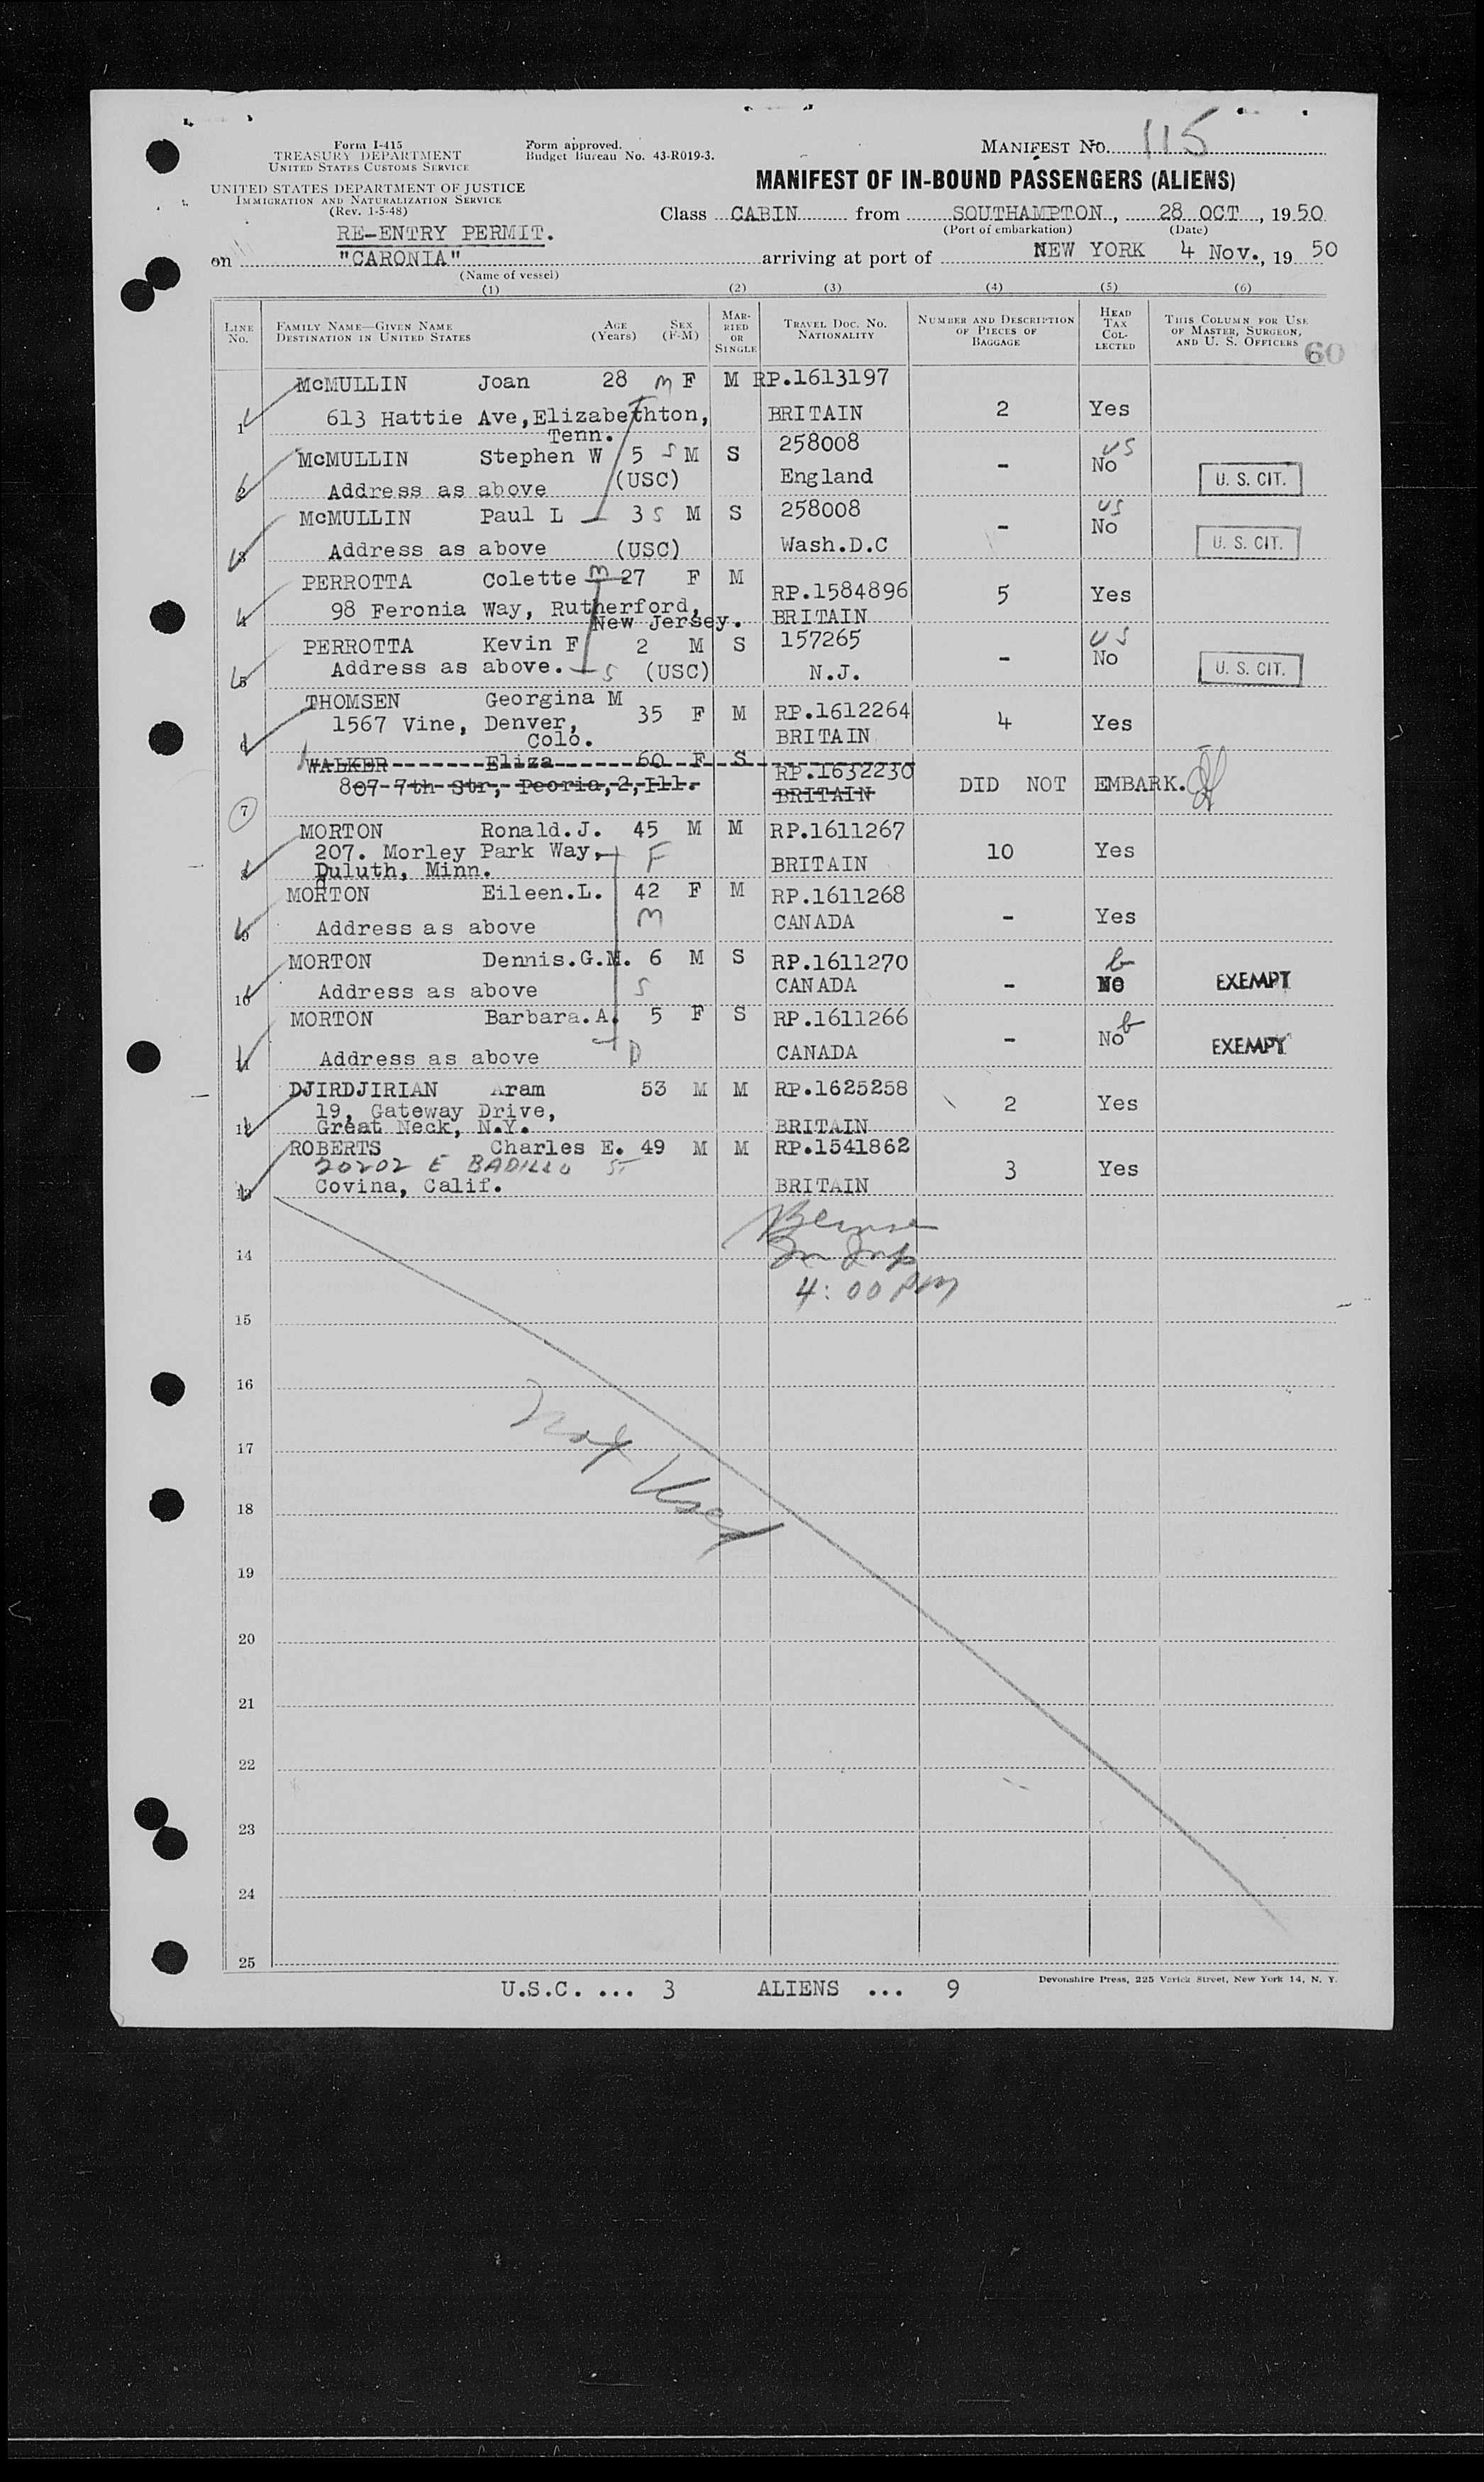 Form I-415
TREASURY DEPARTMENT
UNITED STATES CUSTOMS SERVICE
UNITED STATES DEPARTMENT OF JUSTICE
IMMIGRATION AND NATURALIZATION SERVICE
(Rev. 1-5-48)
Form approved.
Budget Bureau No. 43-R019-3.
MANIFEST NO. 115
MANIFEST OF IN-BOUND PASSENGERS (ALIENS)
Class CABIN from SOUTHAMPTON, 28 OCT, 1950
(Port of embarkation) (Date)
RE-ENTRY PERMIT.
on "CARONIA" arriving at port of NEW YORK 4 Nov., 19 50
(Name of vessel)
(1) (2) (3) (4) (5) (6)
LINE NO. FAMILY NAME—GIVEN NAME DESTINATION IN UNITED STATES AGE (Years) SEX (F-M) MARRIED OR SINGLE TRAVEL DOC. NO. NATIONALITY NUMBER AND DESCRIPTION OF PIECES OF BAGGAGE HEAD TAX COLLECTED THIS COLUMN FOR USE OF MASTER, SURGEON, AND U. S. OFFICERS
60
1 McMULLIN Joan 28 m F M RP.1613197
613 Hattie Ave,Elizabethton, BRITAIN 2 Yes
Tenn.
2 McMULLIN Stephen W 5 S M S 258008 - No US
Address as above (USC) England U. S. CIT.
3 McMULLIN Paul L 3 S M S 258008 - No US
Address as above (USC) Wash.D.C U. S. CIT.
4 PERROTTA Colette m 27 F M RP.1584896 5 Yes
98 Feronia Way, Rutherford, BRITAIN
New Jersey.
5 PERROTTA Kevin F 2 M S 157265 - No US
Address as above. S (USC) N.J. U. S. CIT.
6 THOMSEN Georgina M 35 F M RP.1612264 4 Yes
1567 Vine, Denver, BRITAIN
Colo.
7 WALKER Eliza 60 F S RP.1632230 DID NOT EMBARK.
807 7th Str, Peoria,2,Ill. BRITAIN
8 MORTON Ronald.J. 45 M M RP.1611267 10 Yes
207. Morley Park Way, F BRITAIN
Duluth, Minn.
9 MORTON Eileen.L. 42 F M RP.1611268 - Yes
Address as above m CANADA
10 MORTON Dennis.G.M. 6 M S RP.1611270 - No b EXEMPT
Address as above S CANADA
11 MORTON Barbara.A. 5 F S RP.1611266 - No b EXEMPT
Address as above D CANADA
12 DJIRDJIRIAN Aram 53 M M RP.1625258 2 Yes
19, Gateway Drive,
Great Neck, N.Y. BRITAIN
13 ROBERTS Charles E. 49 M M RP.1541862 3 Yes
20202 E BADILLO ST
Covina, Calif. BRITAIN
14
4:00 PM
15
16
Not Used
17
18
19
20
21
22
23
24
25
U.S.C. ... 3 ALIENS ... 9
Devonshire Press, 225 Varick Street, New York 14, N. Y.